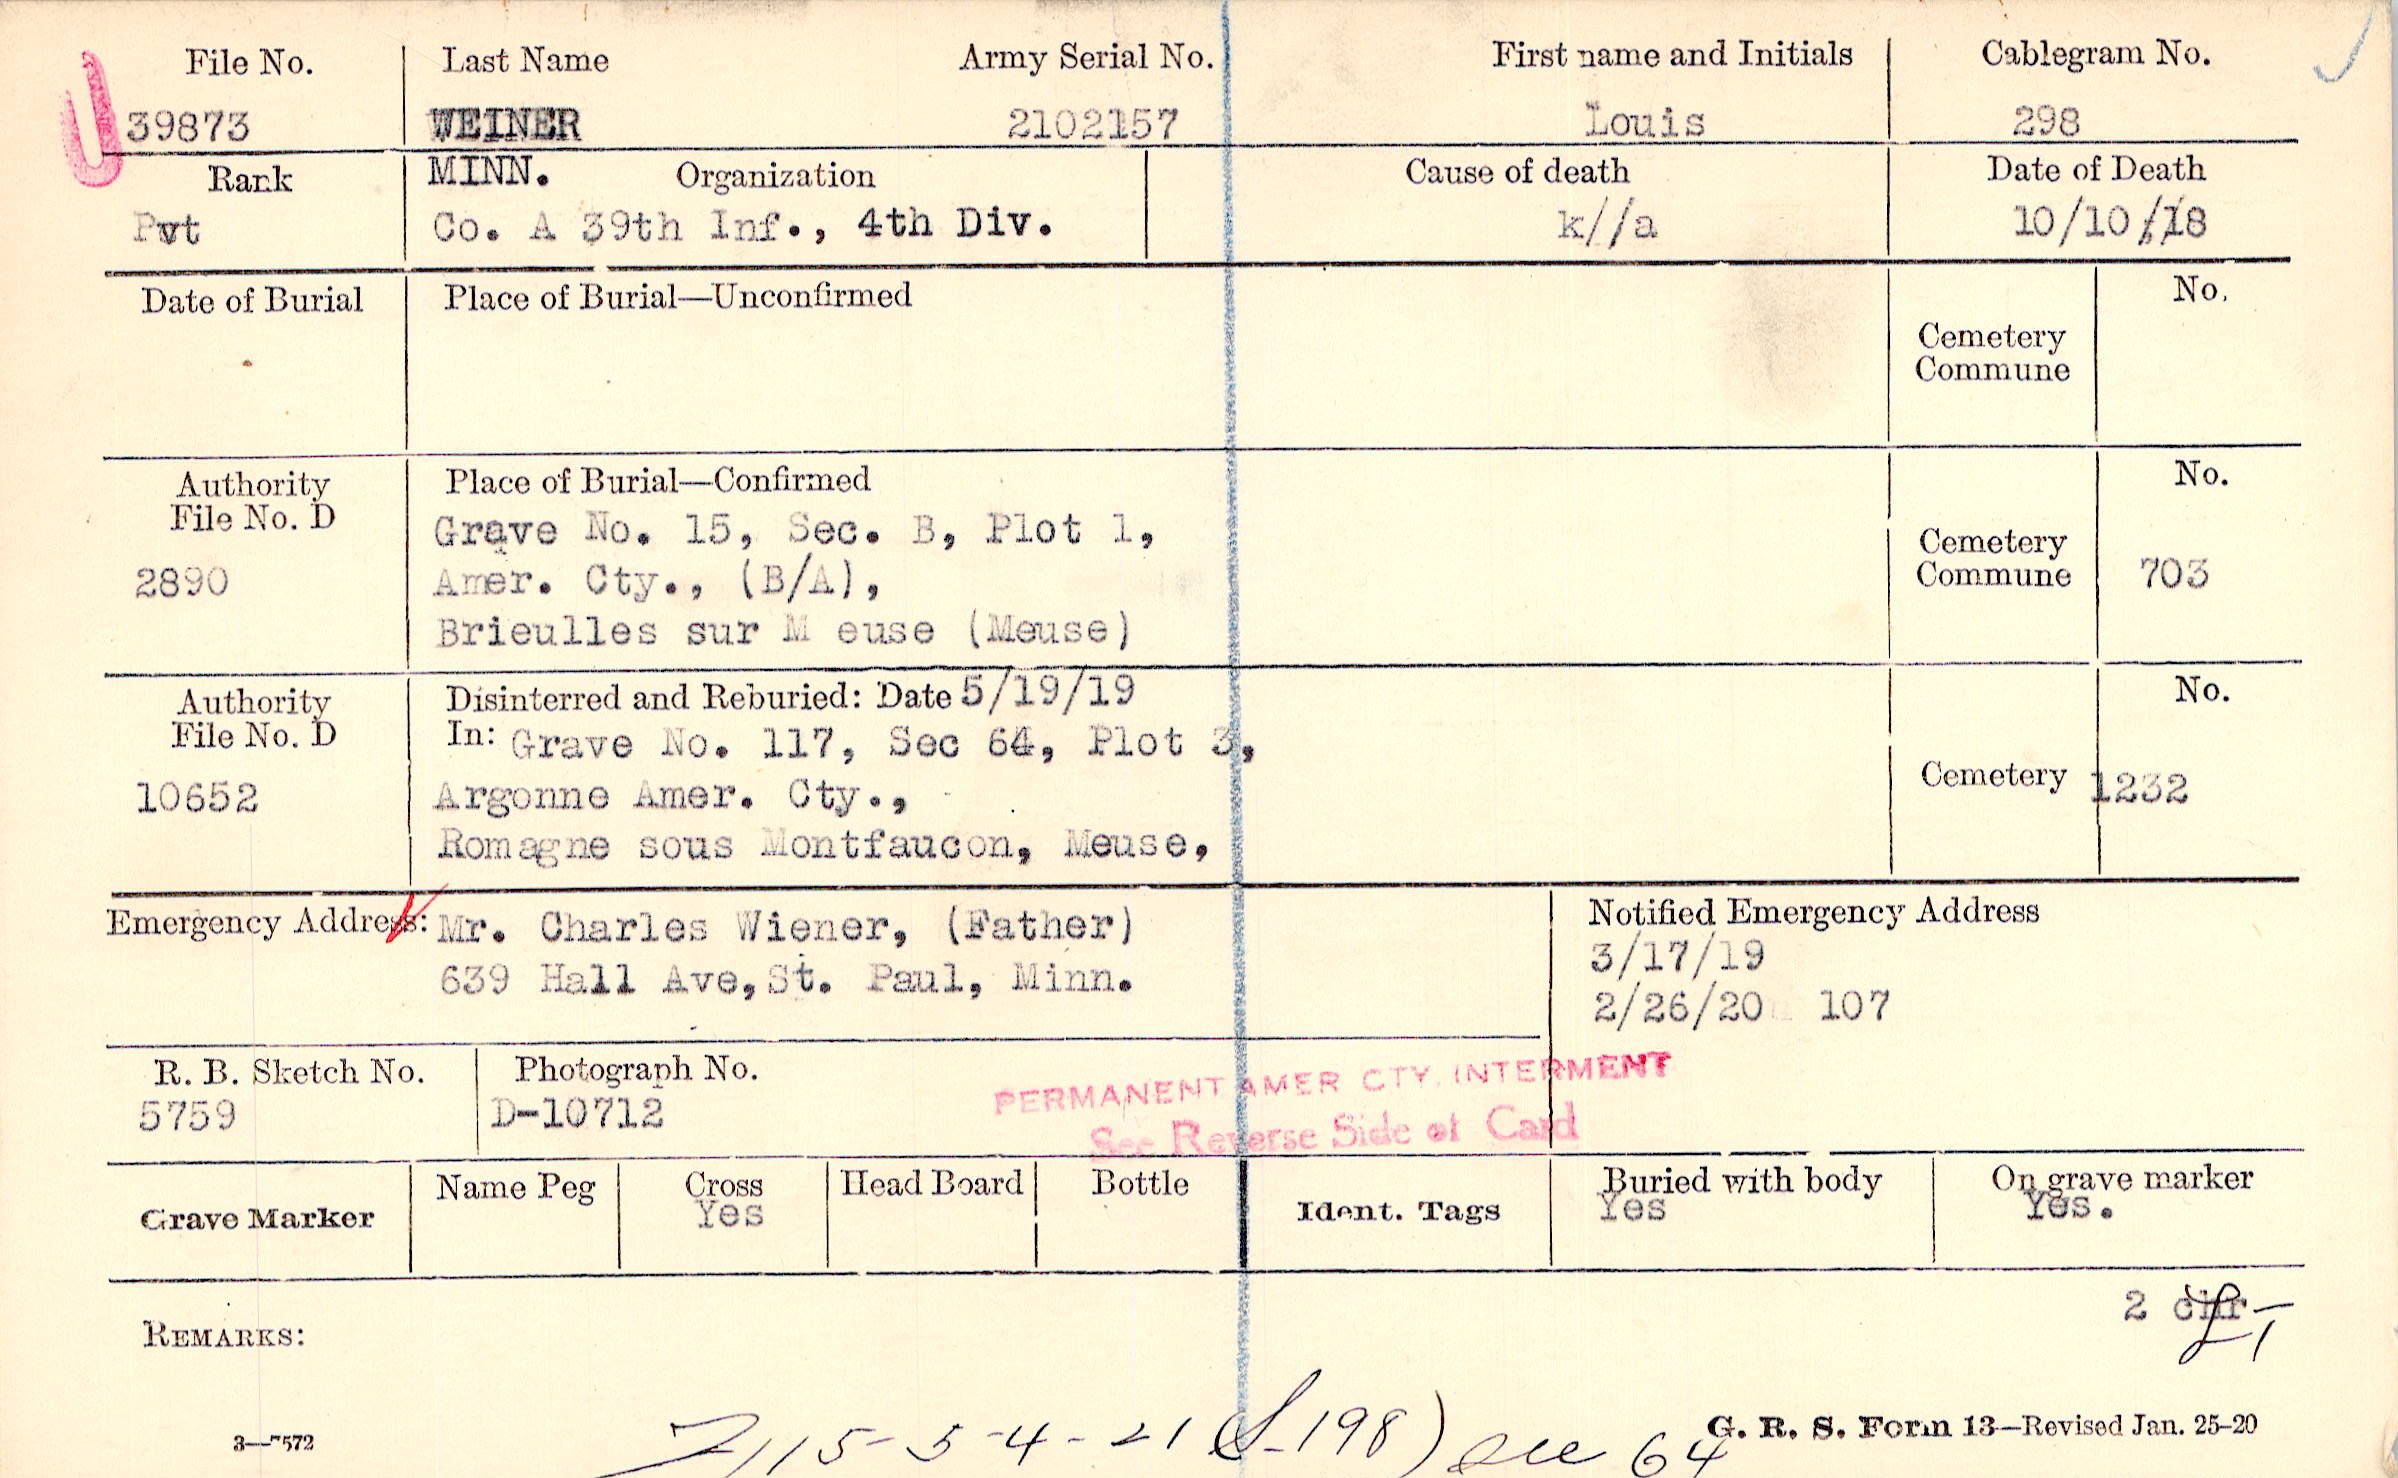 File No. Last Name Army Serial No. First name and Initials Cablegram No.
39873 WEINER 2102157 Louis 298
Rank MINN. Organization Cause of death Date of Death
Pvt Co. A 39th Inf., 4th Div. k//a 10/10/18
Date of Burial Place of Burial—Unconfirmed No.
Cemetery
Commune
Authority Place of Burial—Confirmed No.
File No. D Grave No. 15, Sec. B, Plot 1, Cemetery
2890 Amer. Cty., (B/A), Commune 703
Brieulles sur M euse (Meuse)
Authority Disinterred and Reburied: Date 5/19/19 No.
File No. D In: Grave No. 117, Sec 64, Plot 3,
10652 Argonne Amer. Cty., Cemetery 1232
Romagne sous Montfaucon, Meuse,
Emergency Address: Mr. Charles Wiener, (Father) Notified Emergency Address
639 Hall Ave, St. Paul, Minn. 3/17/19
2/26/20 107
R. B. Sketch No. Photograph No. PERMANENT AMER CTY. INTERMENT
5759 D-10712 See Reverse Side of Card
Grave Marker Name Peg Cross Head Board Bottle Ident. Tags Buried with body On grave marker
Yes Yes Yes.
2 chr
REMARKS:
115-5-4-21 (S-198) sec 64
3—7572 G. R. S. Form 13—Revised Jan. 25-20